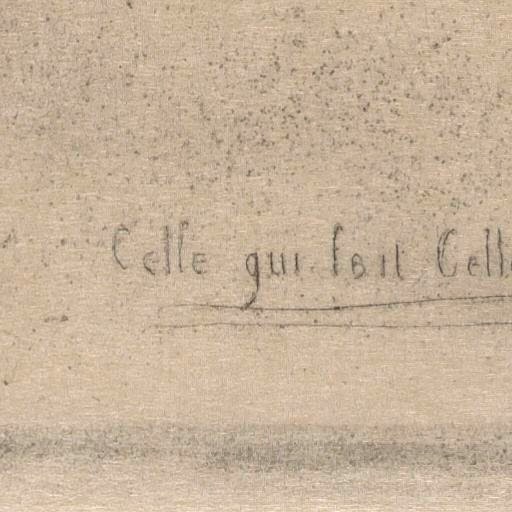 Celle qui fait Celle